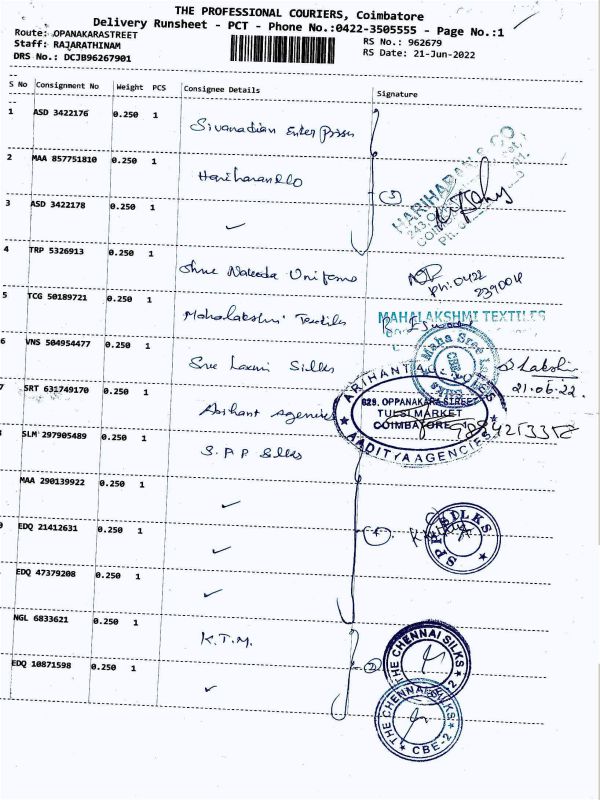 THE PROFESSIONAL COURIERS, Coimbatore
Delivery Runsheet - PCT - Phone No.:0422-3505555 - Page No.:1
Route: OPANAKARASTREET
Staff: RAJARATHINAM
DRS No.: DCJB96267901
RS No.: 962679
RS Date: 21-Jun-2022
S No Consignment No Weight PCS Consignee Details Signature
1 ASD 3422176 0.250 1 Sivanadian Enterprises
2 MAA 857751810 0.250 1 Hariharan & Co
3 ASD 3422178 0.250 1 ✓
(3)
HARIHARAN & CO
4 TRP 5326913 0.250 1 Shree Uniforms
Ph: 0422
2390014
5 TCG 50189721 0.250 1 Mahalakshmi Textiles
MAHALAKSHMI TEXTILES
6 VNS 504954477 0.250 1 Sree Laxmi Silks
Maha Sree
S. Lakshi
21.06.22.
7 SRT 631749170 0.250 1 Arihant agencies
ARIHANT
629, OPPANAKARA STREET
TULSI MARKET
COIMBATORE
AADITYA AGENCIES
SLM 297905489 0.250 1 S.P.P Silks
MAA 290139922 0.250 1 ✓
EDQ 21412631 0.250 1 ✓
SPP SILKS
EDQ 47379208 0.250 1 ✓
NGL 6833621 0.250 1 K.T.M.
(2)
THE CHENNAI SILKS
EDQ 10871598 0.250 1 ✓
THE CHENNAI SILKS
CBE-2